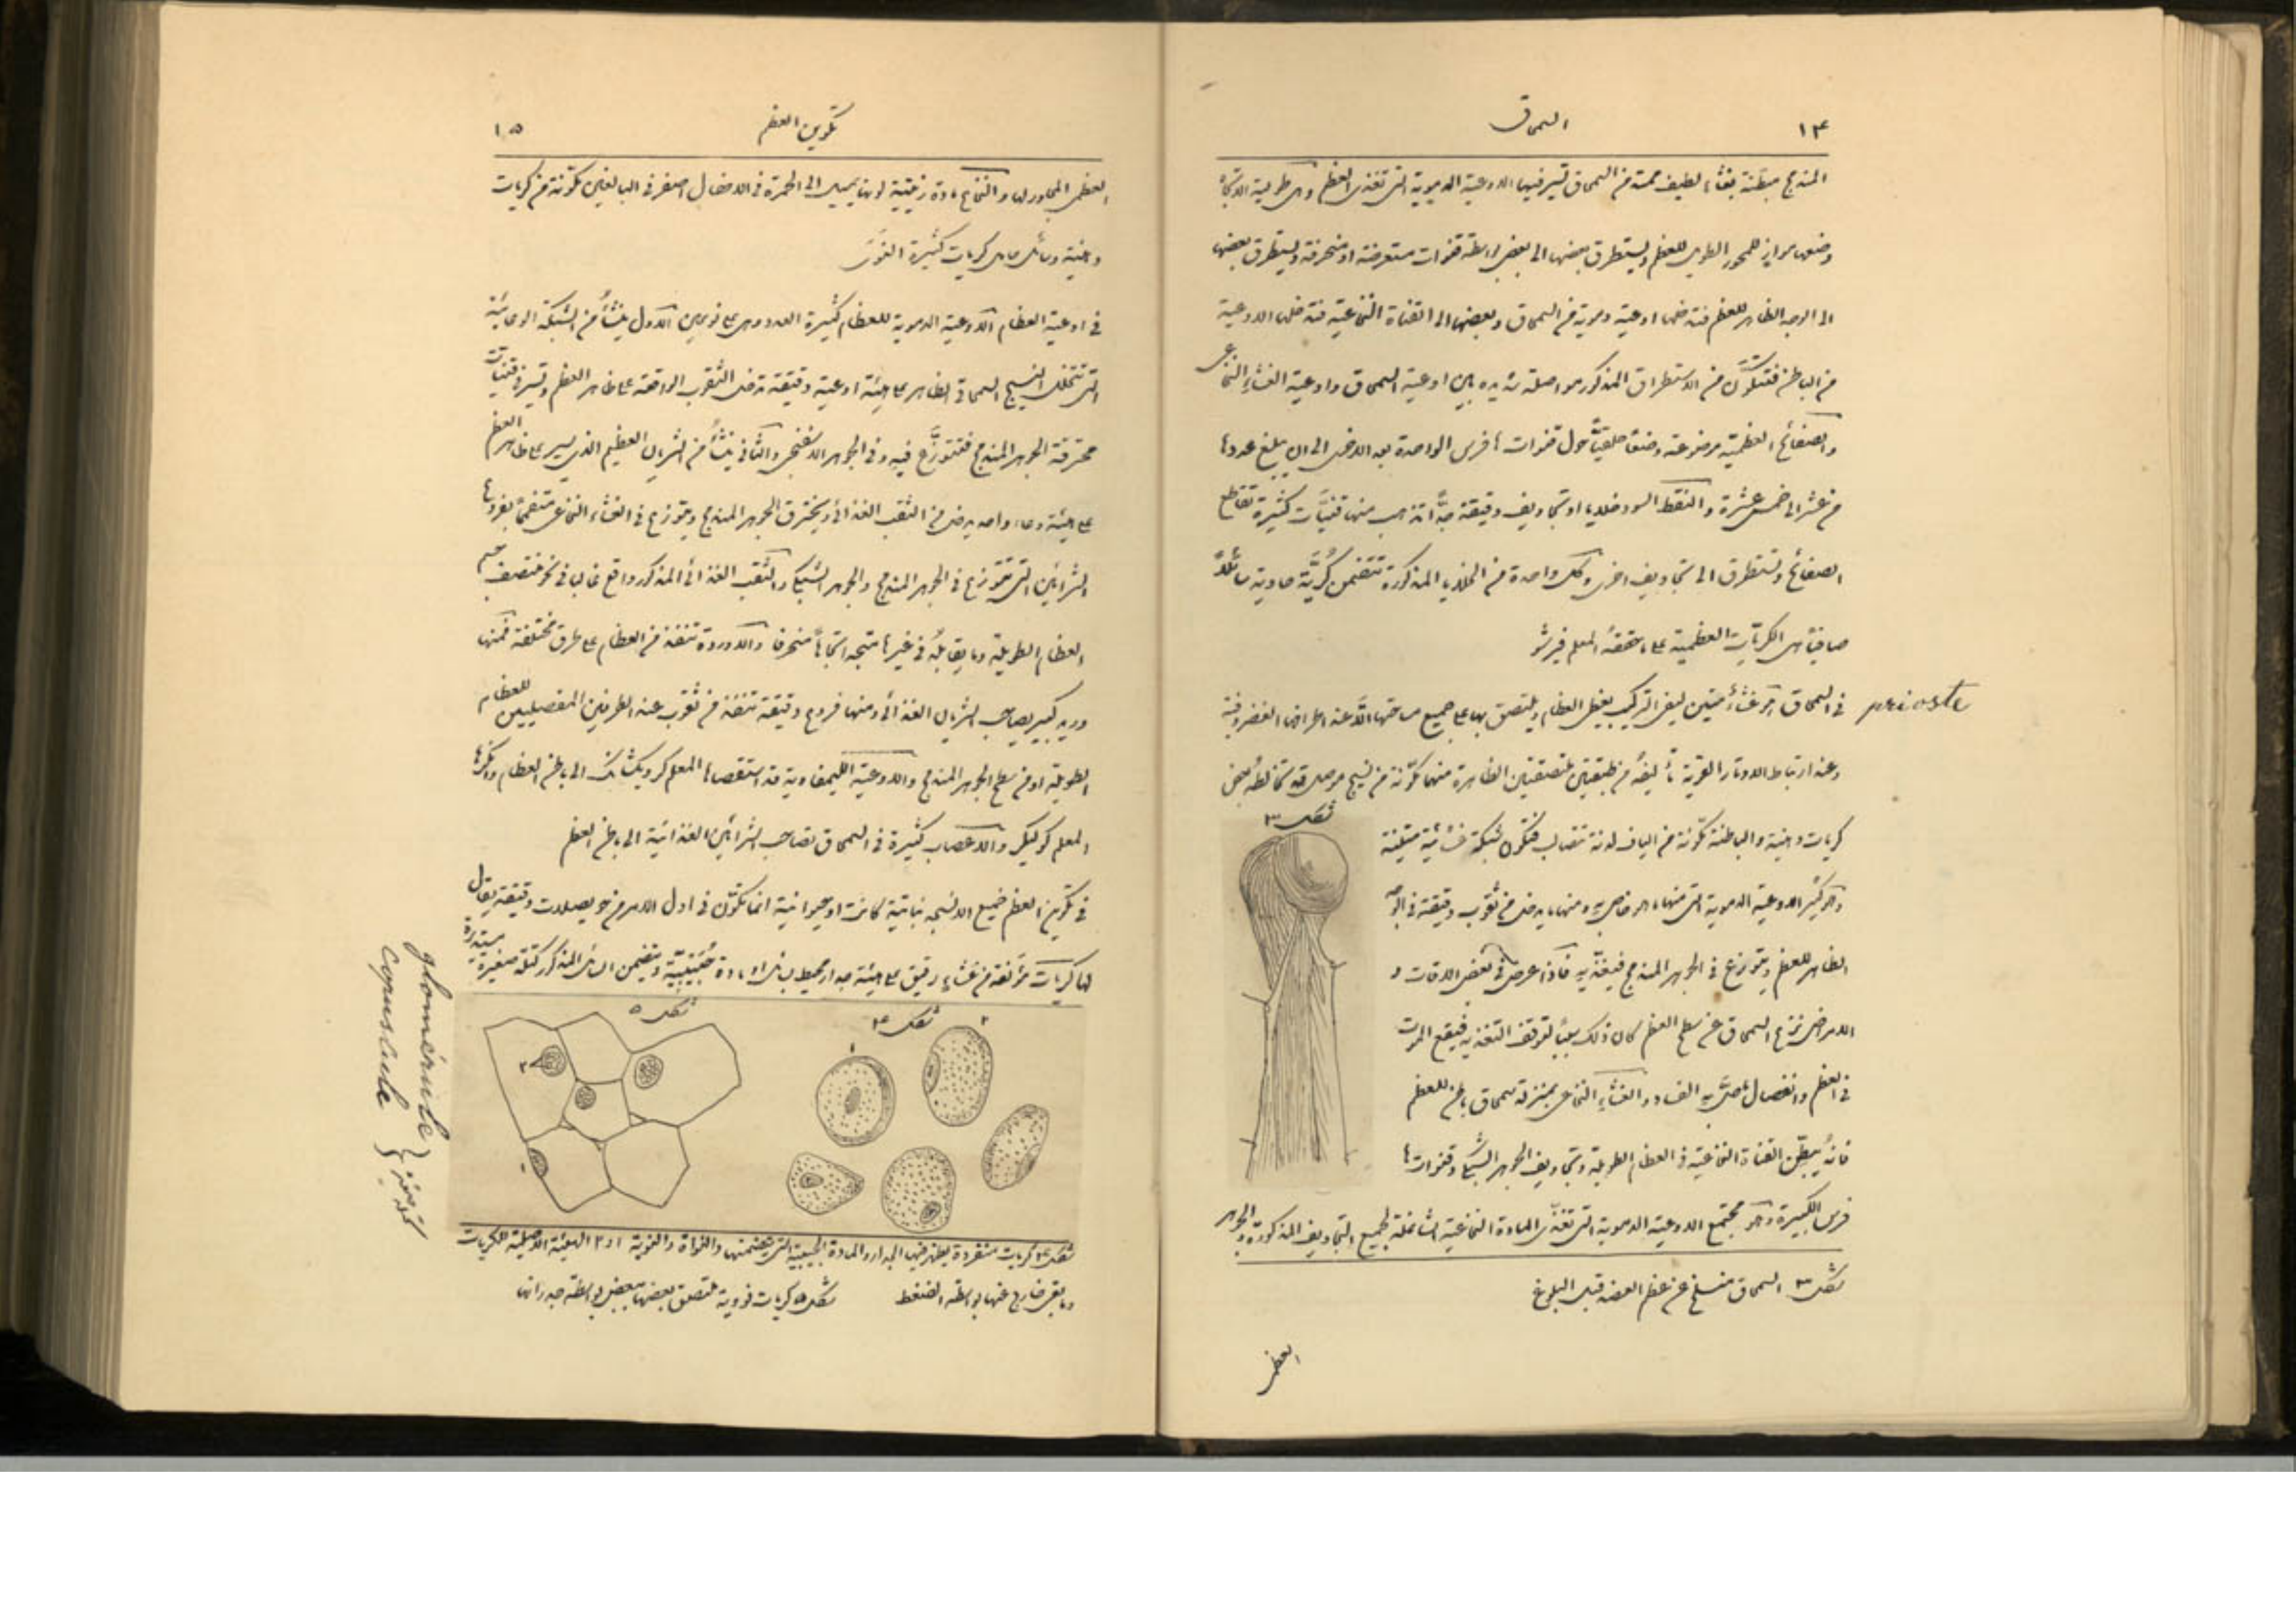 ١٤
السمحاق
المندمج مبطنة بغشاء لطيف ممتد من السمحاق تسير فيها الاوعية الدموية التي تغذي العظم وهي طولية الاتجاه
وضعها موازٍ للمحور الطويل للعظم ويستطرق بعضها الى بعض بواسطة قنوات مستعرضة او منحرفة ويستطرق بعضها
الى الوجه الظاهر للعظم فتدخلها اوعية دموية من السمحاق وبعضها الى القناة النخاعية فتدخلها الاوعية
من الباطن فتتكوَّن من الاستطراق المذكور مواصلة شديدة بين اوعية السمحاق واوعية الغشاء النخاعي
والصفائح العظمية موضوعة وضعًا حلقيًّا حول قنوات هافرس الواحدة بعد الاخرى الى ان يبلغ عددها
من عشر الى خمس عشرة والنقط السود خلايا او تجاويف دقيقة جدًّا تذهب منها قنيَّات كثيرة تقاطع
الصفائح وتستطرق الى تجاويف اخرى وكل واحدة من الخلايا المذكورة تتضمن كُريَّة حاوية سائلًا
صافيًا هي الكريّات العظمية على ما حققهُ المعلم فيرشو
في السمحاق هو غشاءٌ متين ليفي التركيب يغطي العظام ويلتصق بها على جميع مساحتها الَّا عند اطرافها الغضروفية
perioste
وعند ارتباط الاوتار القوية تأليفهُ من طبقتين ملتصقتين الظاهرة منهما مكوَّنة من نسيج موصل قد تخالطهُ بعض
شكل ٣
كريات دهنية والباطنة مكوَّنة من الياف لدنة تتصالب فتكوّن شبكة غشائية متينة
وهو كثير الاوعية الدموية التي منها ما هو خاص به ومنها ما يدخل من ثقوب دقيقة في الوجه
الظاهر للعظم ويتوزع في الجوهر المندمج فيغذّيهِ فاذا عرض في بعض الآفات و
الامراض نزع السمحاق عن سطح العظم كان ذلك سببًا لتوقف التغذية فيقع الموت
في العظم وانفصال ما حلَّ به الفساد والغشاء النخاعي بمنزلة سمحاق باطن للعظم
فانهُ يبطّن القناة النخاعية في العظام الطويلة وتجاويف الجوهر الشبكي وقنوات ها
فرس الكبيرة وهو مجتمع الاوعية الدموية التي تغذّي المادة النخاعية الشاغلة لجميع التجاويف المذكورة والجوهر
شكل ٣ السمحاق منسلخ عن عظم العضد قبل البلوغ
العظمي
١٥
تكوين العظم
العظمي المجاور لها والنخاع مادة زيتية لونها يميل الى الحمرة في الاطفال اصفر في البالغين مكوّنة من كريات
دهنية وسائل حامل كريات كثيرة النوى
في اوعية العظام الاوعية الدموية للعظام كثيرة العدد وهي على نوعين الاول ينشأُ من الشبكة الوعائية
التي تتخلل النسيج السمحاقي الظاهر على هيئة اوعية دقيقة تدخل الثقوب الواقعة على ظاهر العظم وتسير في قنيات
مخترقة الجوهر المندمج فتتوزَّع فيه وفي الجوهر الاسفنجي والثاني ينشأُ من الشريان العظيم الذي يسير على ظاهر العظم
على هيئة وعاء واحد يدخل من الثقب الغذائي ويخترق الجوهر المندمج ويتوزع في الغشاء النخاعي متفممًا بفروعها
الشرايين التي تتوزع في الجوهر المندمج والجوهر الشبكي والثقب الغذائي المذكور واقع غالبًا في نحو منتصف جسم
العظام الطويلة وما يقابلهُ في غيرها متجه اتجاهًا منحرفًا والاوردة تنفذ من العظام على طرق مختلفة فمنها
وريد كبير يصاحب الشريان الغذائي ومنها فروع دقيقة تنفذ من ثقوب عند الطرفين المفصليين للعظام
الطويلة او من سطح الجوهر المندمج والاوعية الليمفاوية قد استقصاها المعلم كرويكشانك الى باطن العظام وانكرها
المعلم كوليكر والاعصاب كثيرة في السمحاق تصاحب الشرايين الغذائية الى باطن العظم
في تكوين العظم جميع الانسجة نباتية كانت او حيوانية انما تكوّن في اول الامر من حويصلات دقيقة يقال
لها كريات مؤلفة من غشاء رقيق على هيئة جدار محيط بسائل او مادة حُبَيْبيَّة ويتضمن السائل المذكور كتلة صغيرة مستديرة
شكل ٤
١
٢
شكل ٥
٢
١
شكل ٤ كريات منفردة يظهر فيها الجدار والمادة الحبيبية التي يتضمنها والنواة والنوية ١ و ٢ الهيئة الاصلية للكريات
وما بقي خارج عنها بواسطة الضغط
شكل ٥ كريات نووية ملتصق بعضها ببعض بواسطة جدرانها
glomerule
copuscule